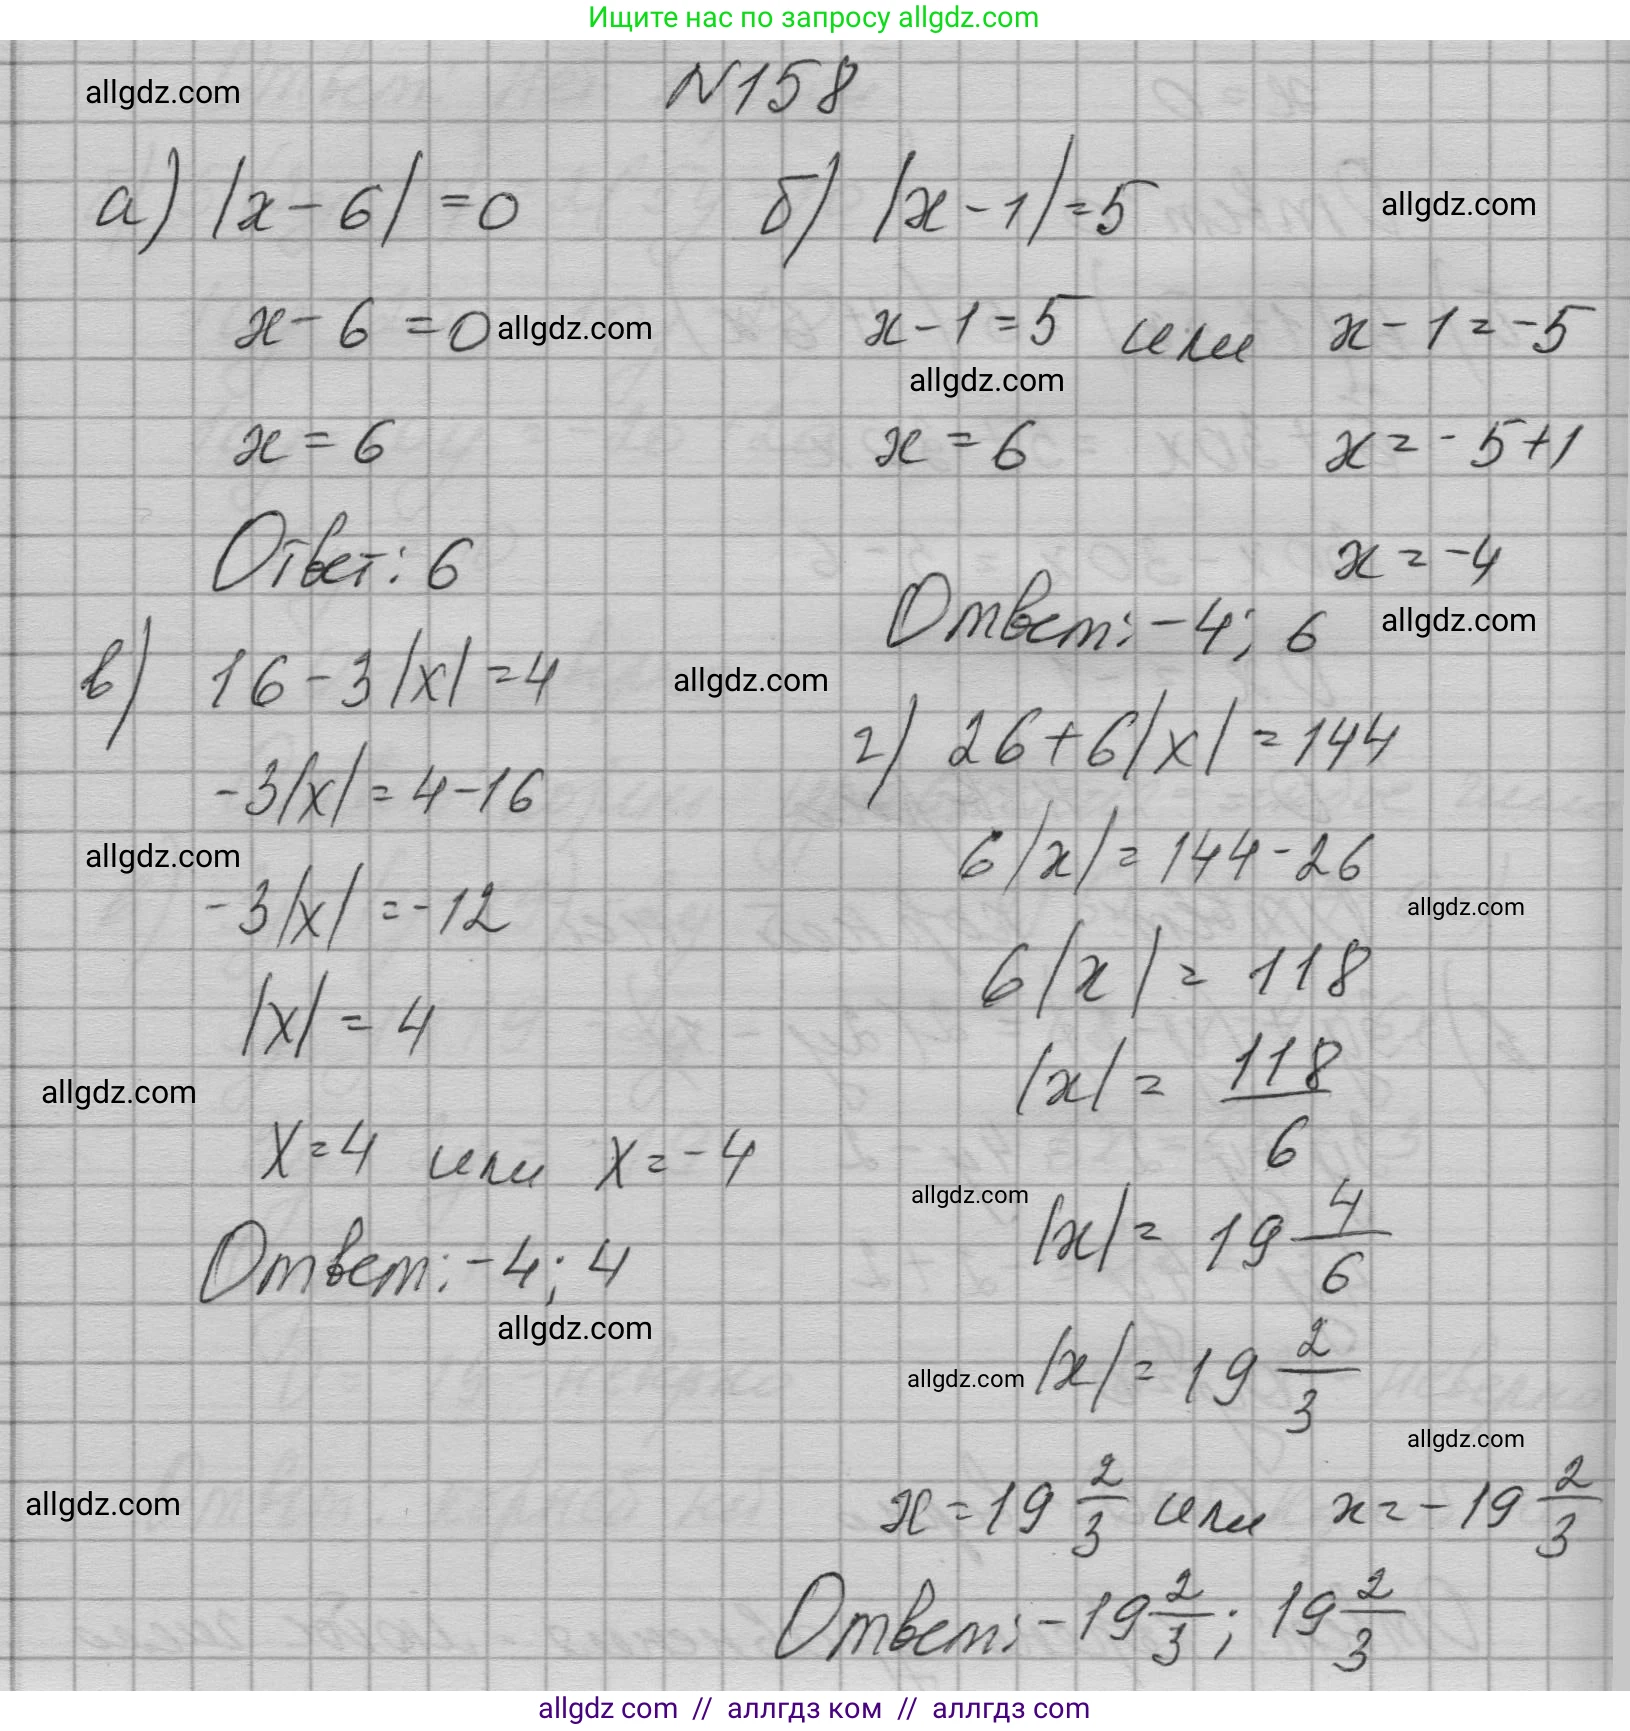 Ищите нас по запросу allgdz.com
allgdz.com
N158
а) |x - 6| = 0
x - 6 = 0
allgdz.com
x = 6
Ответ: 6
б) |x - 1| = 5
allgdz.com
x - 1 = 5 или x - 1 = -5
allgdz.com
x = 6 x = -5 + 1
x = -4
Ответ: -4; 6
allgdz.com
в) 16 - 3|x| = 4
allgdz.com
-3|x| = 4 - 16
allgdz.com
-3|x| = -12
|x| = 4
allgdz.com
x = 4 или x = -4
Ответ: -4; 4
allgdz.com
г) 26 + 6|x| = 144
6|x| = 144 - 26
allgdz.com
6|x| = 118
|x| = 118/6
allgdz.com
|x| = 19 4/6
allgdz.com
|x| = 19 2/3
allgdz.com
allgdz.com
x = 19 2/3 или x = -19 2/3
Ответ: -19 2/3; 19 2/3
allgdz com // аллгдз ком // аллгдз com